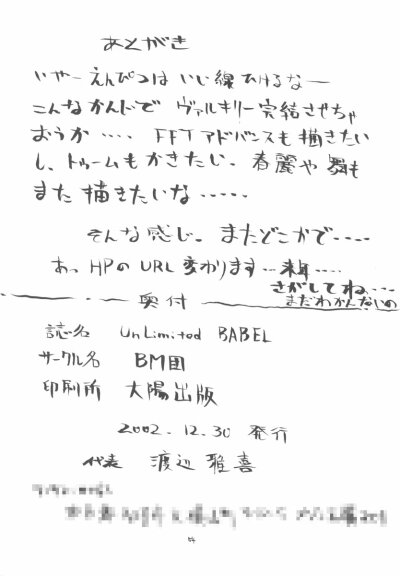 あとがき
いやーえんぴつはいい線ひけるなー
こんなかんじで ヴァルキリー完結させちゃ
おうか‥‥ FFTアドバンスも描きたい
し、トゥームもかきたい。春麗や舞も
また描きたいな‥‥‥
そんな感じ。またどこかで‥‥
あっHPのURL変わります…来年‥‥
さがしてね…
まだわかんないの
奥付
誌名 UnLimited BABEL
サークル名 BM団
印刷所 大陽出版
2002.12.30 発行
代表 渡辺雅喜